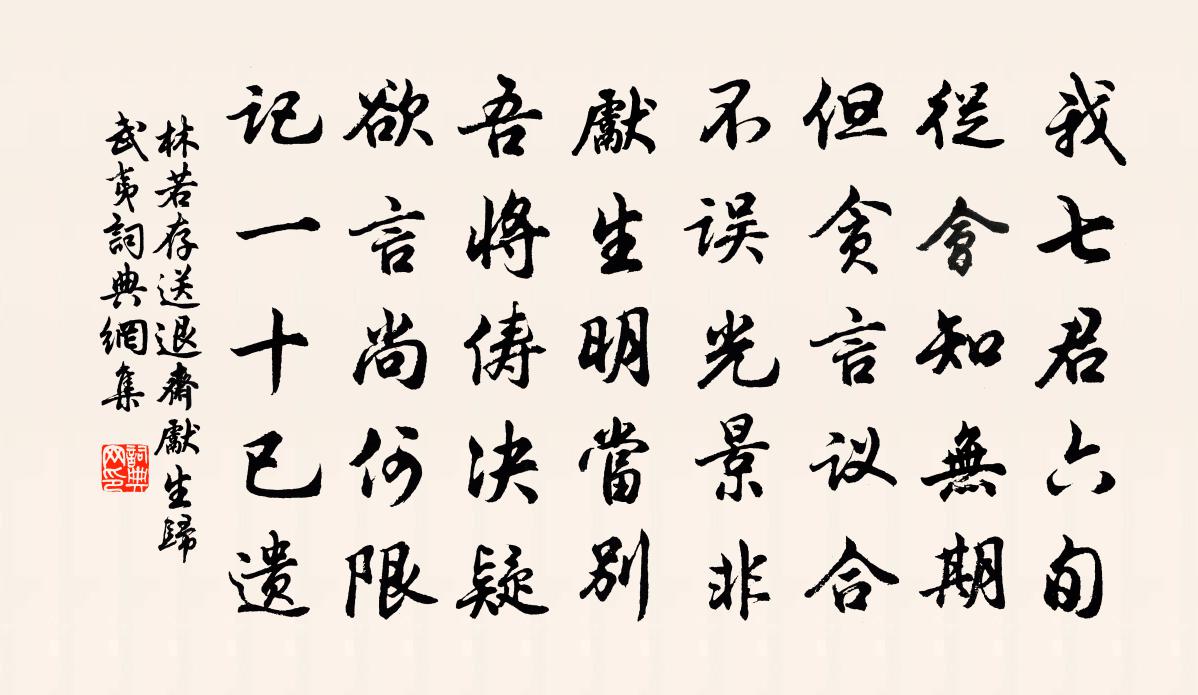 我七君六旬
從會知無期
但贪言议合
不误光景非
獻生明當别
吾將俦决疑
欲言尚何限
记一十已遗
林若存送退齋獻生歸
武夷詞典網集
詞典网印